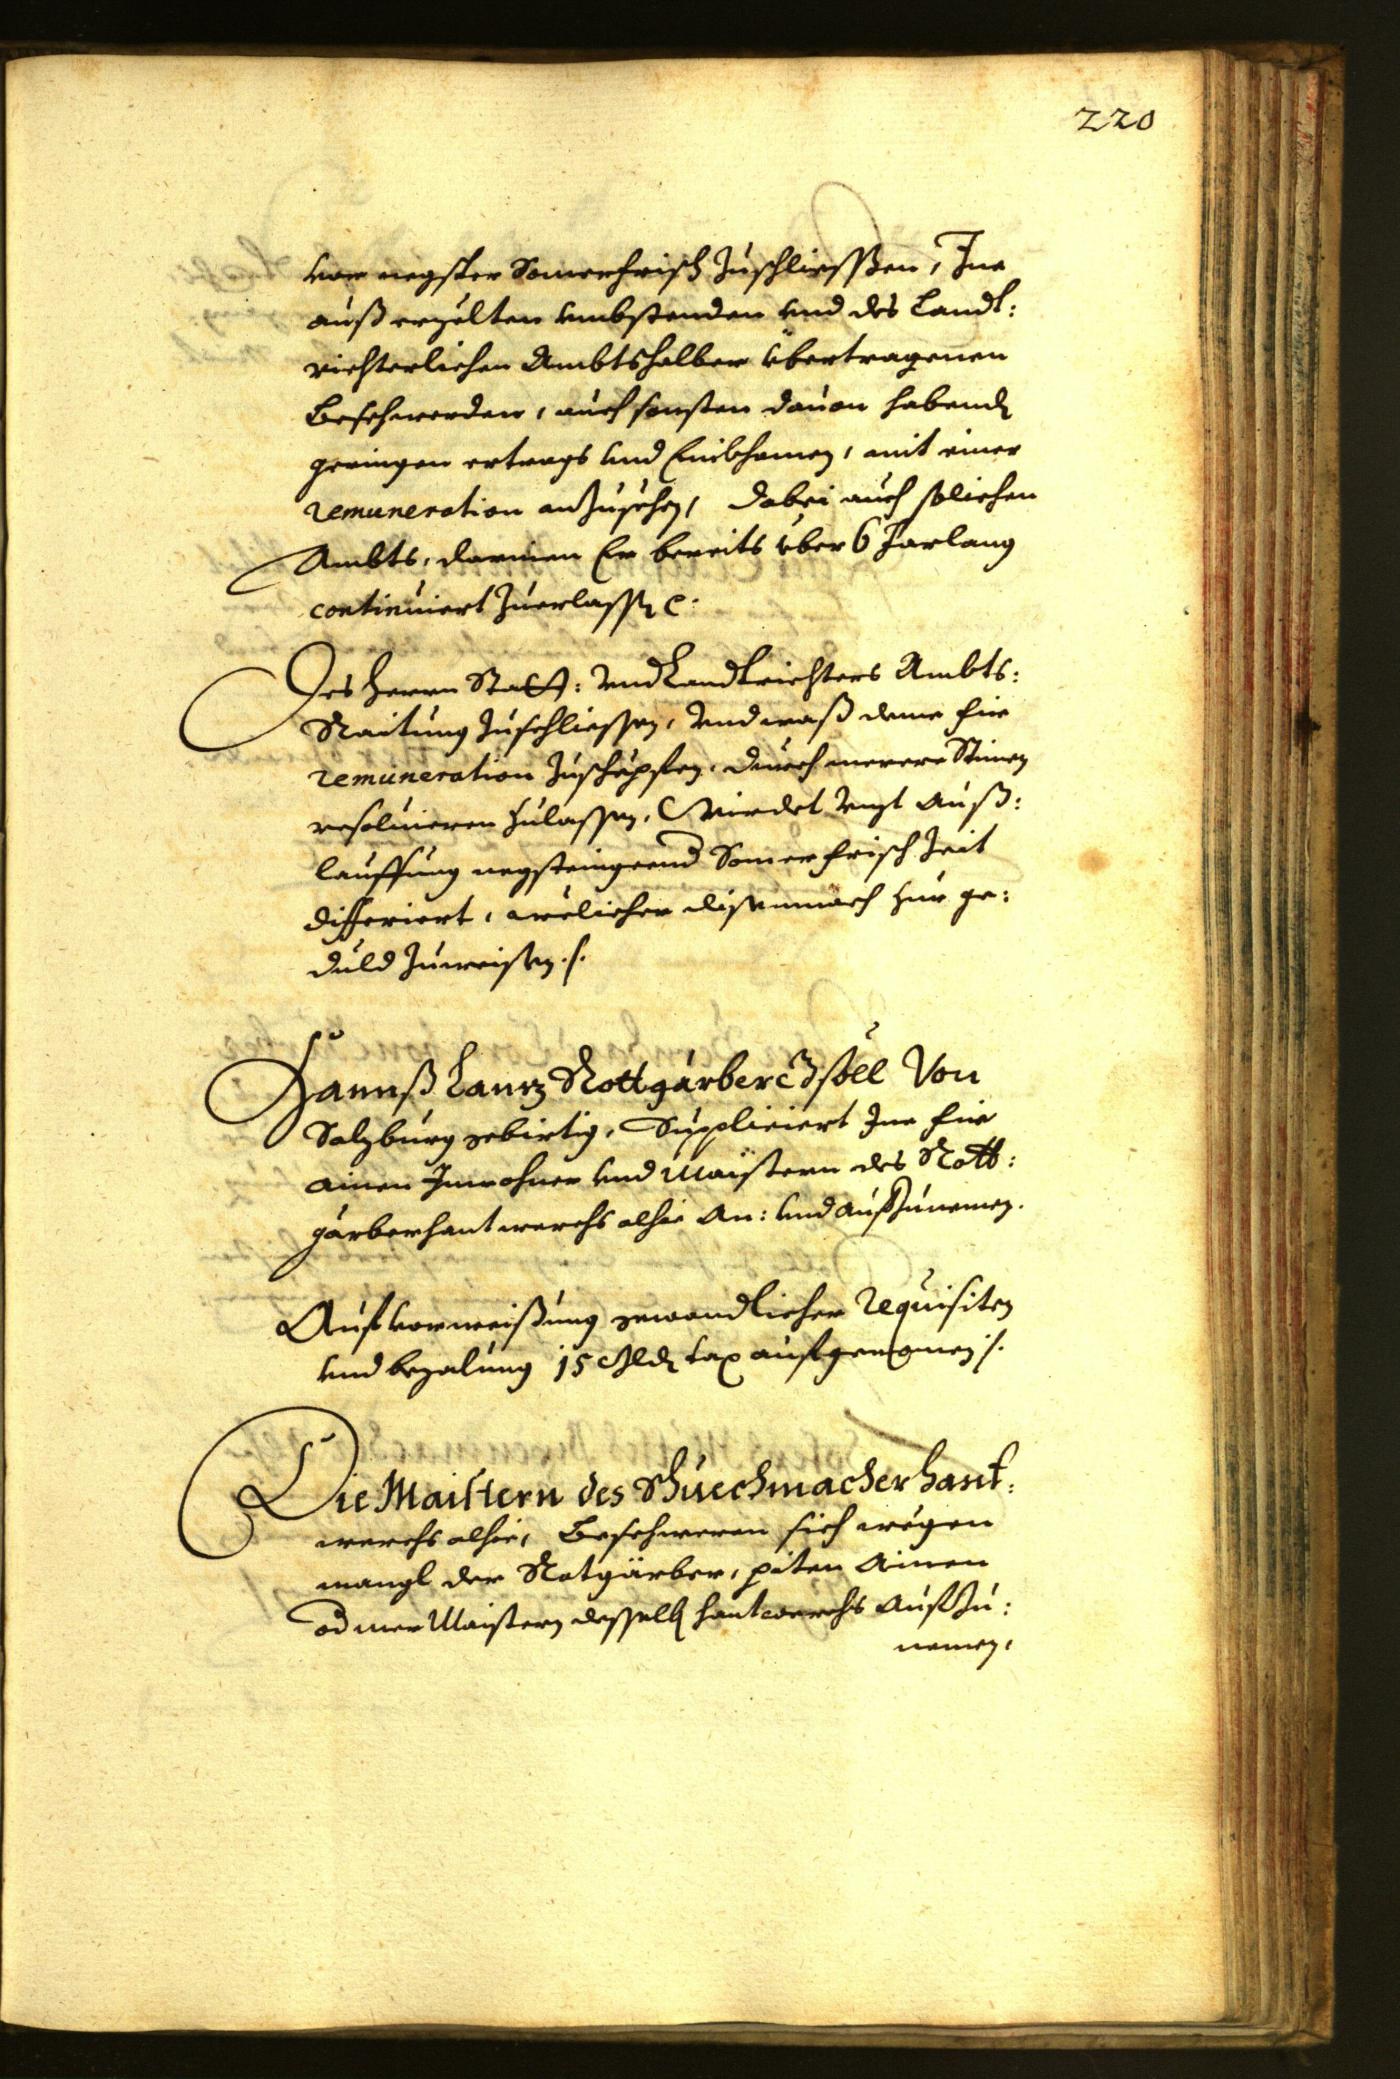 220
vor negster Somerfrisch zuschliessen, Ine
auß erzelten umbstenden und des Landt:
richterlichen Ambtshalber übertragenen
Beschwerden, auch sonsten dauon habend
geringen ertrags und Einkhomen, mit einer
remuneration anzusehen, dabei auch solichen
Ambts, darinen Er bereits über 6 Jar lang
continuiert zuerlassen
Des Herrn Statt: und Landtrichters Ambts:
Raitung zuschliessen, und waß deme für
remuneration zuschepfen, durch merere Stimen
resoluieren zulassen, Wirdet auß:
lauffung negsteingeend Somerfrisch Zeit
differiert, welicher disemnach zur ge:
duld zuweisen ./.
Hannß Lanz Rottgärber Gsöll Von
Salzburg gebirtig, Suppliciert Ine für
ainen Inwohner und Maistern des Rott:
gärberhantwerchs alhie An: und aufzunemen.
Auf vorweißung gewondlicher requisiten
und bezalung 15 tax aufgenomen ./.
Die Maistern des Schuechmacher hant:
werchs alhie, Beschweren sich wegen
mangl der Rotgärber, piten Ainen
od mer Maistern desselben hantwerchs Aufzu:
nemen,